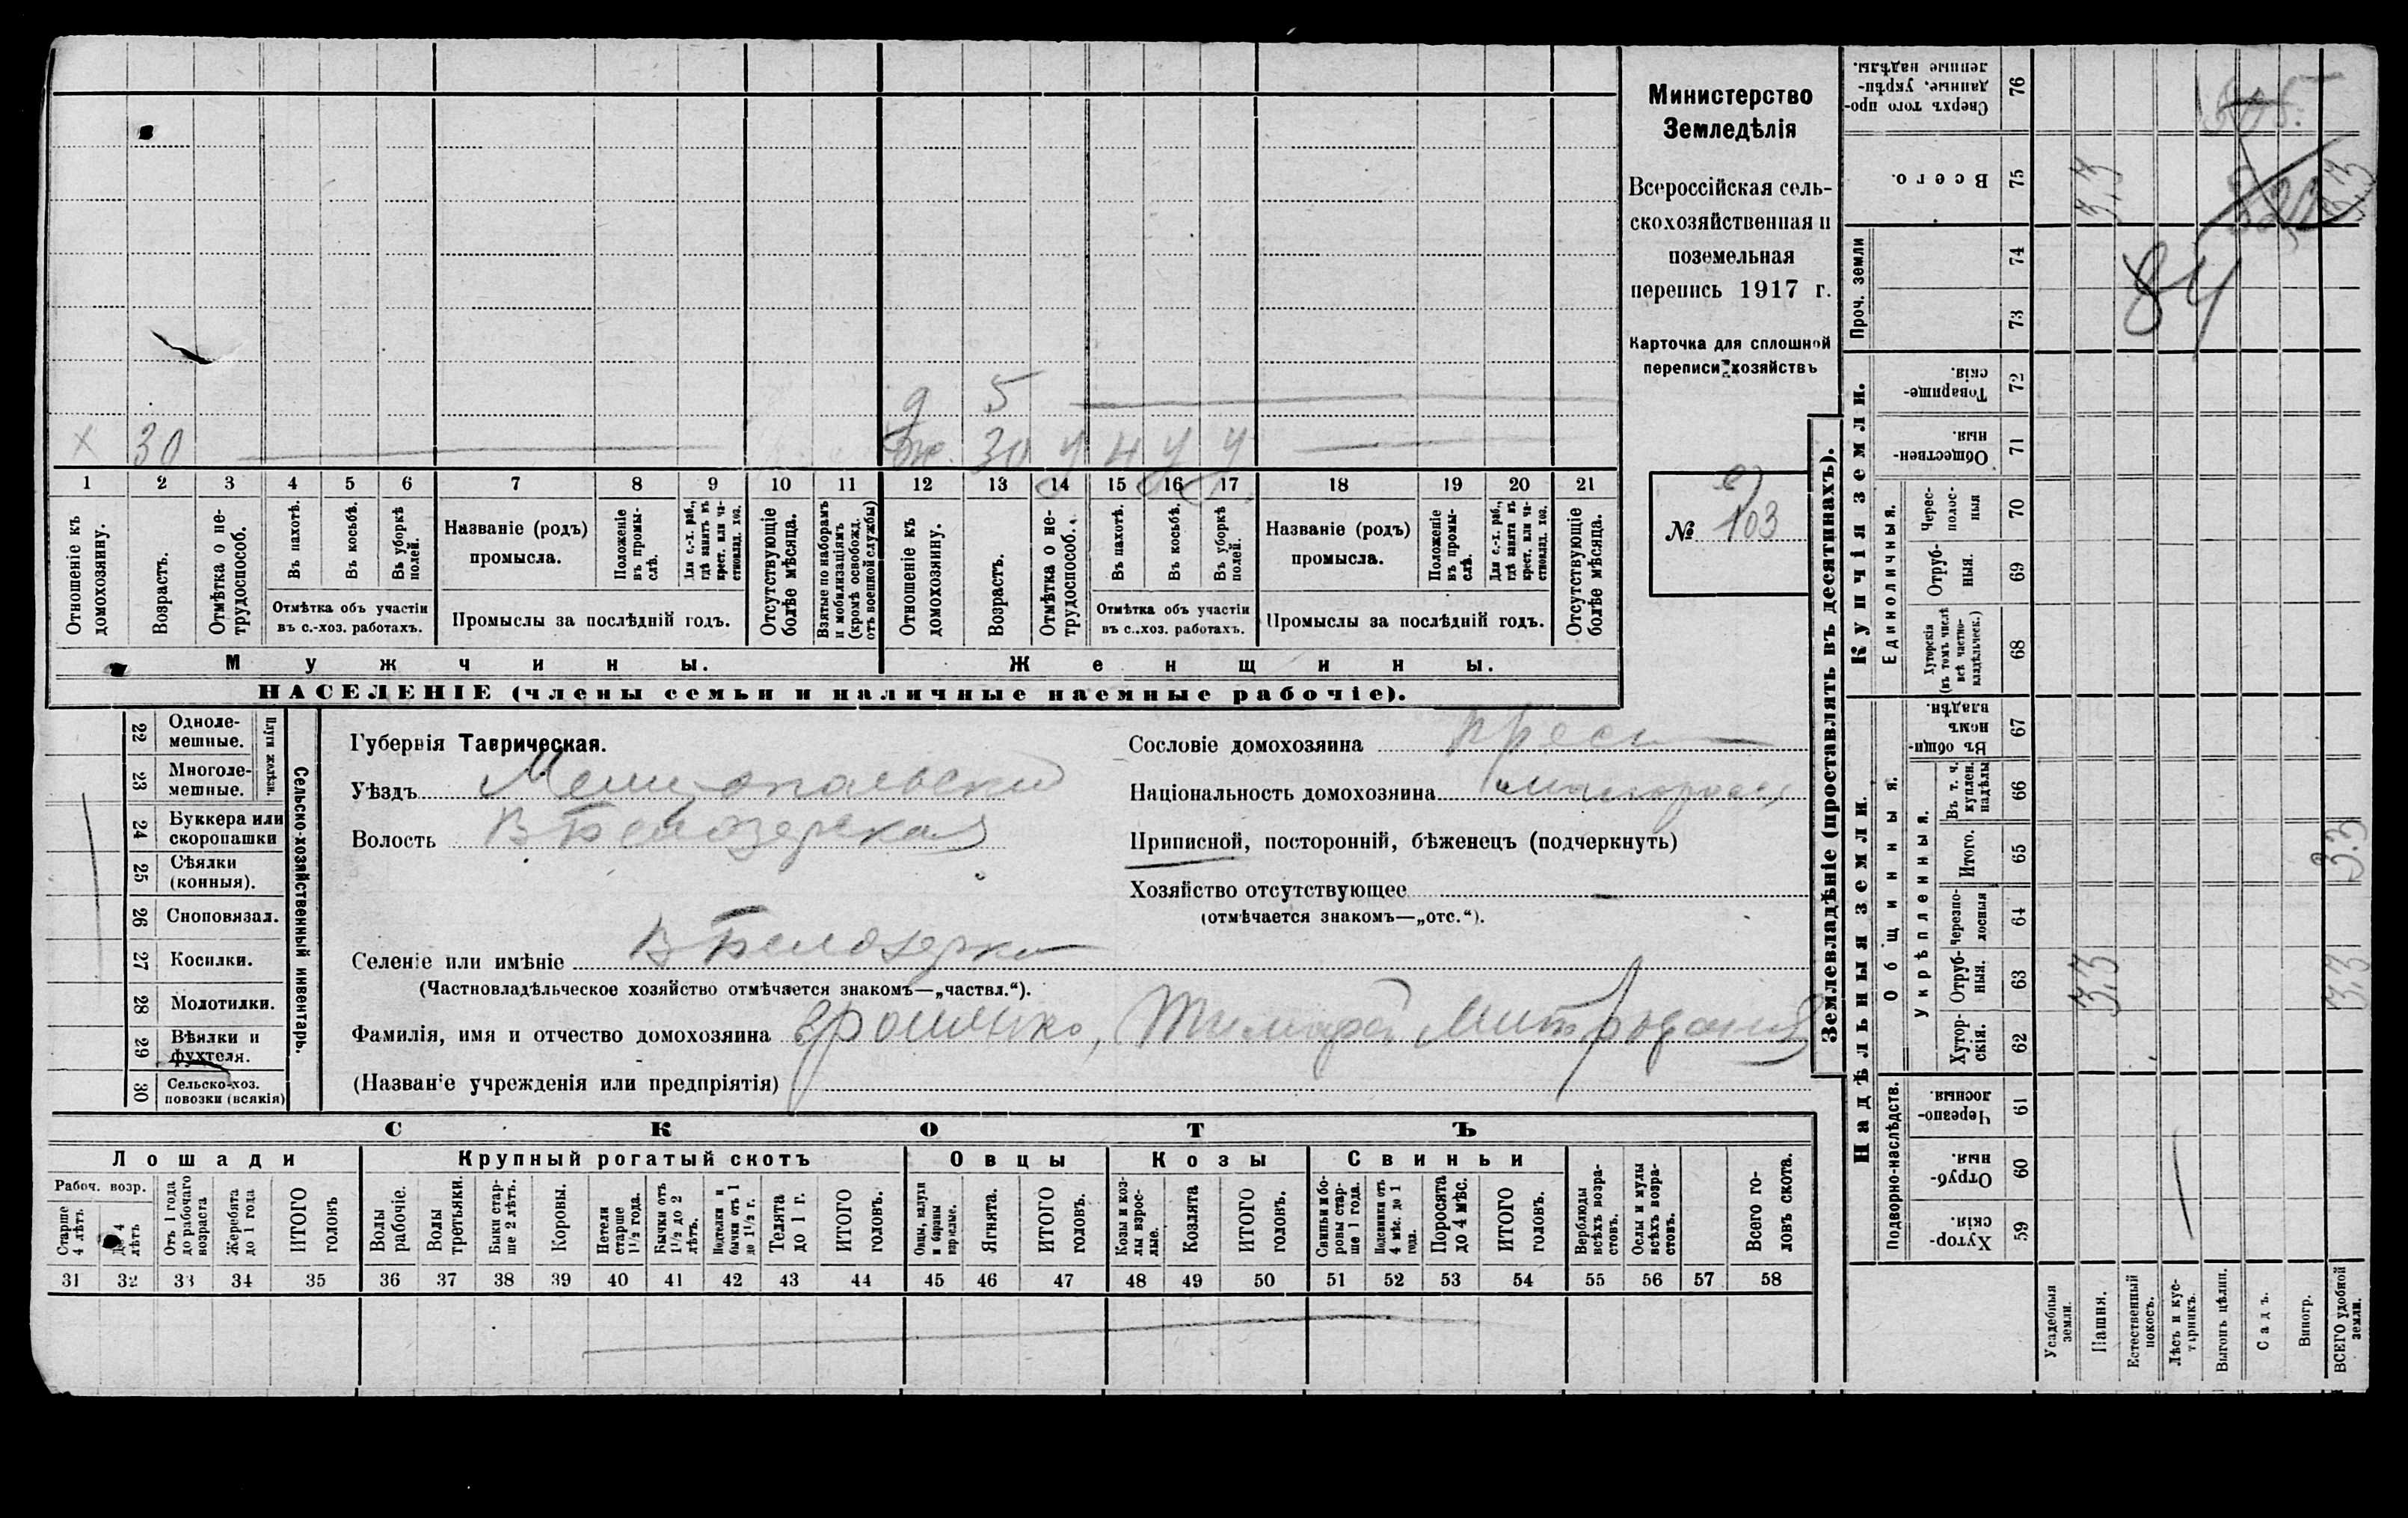 Министерство
Земледѣлія
Всероссійская сель-
скохозяйственная и
поземельная
перепись 1917 г.
Карточка для сплошной
переписи хозяйствъ
№ 103
д 5
х 30
ж. 30 у 4 у у
1 2 3 4 5 6 7 8 9 10 11 12 13 14 15 16 17 18 19 20 21
Отношеніе къ домохозяину.
Возрастъ.
Отмѣтка о не-трудоспособ.
Въ пахотѣ.
Въ косьбѣ.
Въ уборкѣ полей.
Отмѣтка объ участіи
въ с.-хоз. работахъ.
Названіе (родъ)
промысла.
Положеніе въ промы-слѣ.
Для с.-х. раб., гдѣ занятъ въ крест. или ча-стновлад. хоз.
Промыслы за послѣдній годъ.
Отсутствующіе болѣе мѣсяца.
Взятые по наборамъ и мобилизаціямъ (кромѣ освобожд. отъ военной службы)
Отношеніе къ домохозяину.
Возрастъ.
Отмѣтка о не-трудоспособ.
Въ пахотѣ.
Въ косьбѣ.
Въ уборкѣ полей.
Отмѣтка объ участіи
въ с.-хоз. работахъ.
Названіе (родъ)
промысла.
Положеніе въ промы-слѣ.
Для с.-х. раб., гдѣ занята въ крест. или ча-стновлад. хоз.
Промыслы за послѣдній годъ.
Отсутствующіе болѣе мѣсяца.
Мужчины.
Женщины.
НАСЕЛЕНІЕ (члены семьи и наличные наемные рабочіе).
22 Одноле-мешные.
23 Многоле-мешные.
Плуги желѣзн.
24 Буккера или скоропашки
25 Сѣялки (конныя).
26 Сноповязал.
27 Косилки.
28 Молотилки.
29 Вѣялки и фухтеля.
30 Сельско-хоз. повозки (всякія)
Сельско-хозяйственный инвентарь.
Губернія Таврическая.
Уѣздъ Мелитопольскій
Волость В Белозерская
Селеніе или имѣніе В Белозерка
(Частновладѣльческое хозяйство отмѣчается знакомъ—„частвл.“).
Фамилія, имя и отчество домохозяина Ерошенко, Тимофей Митрофанов
(Названіе учрежденія или предпріятія)
Сословіе домохозяина крест
Національность домохозяина малоросс
Приписной, посторонній, бѣженецъ (подчеркнуть)
Хозяйство отсутствующее —
(отмѣчается знакомъ—„отс.“).
СКОТЪ
Лошади
Крупный рогатый скотъ
Овцы
Козы
Свиньи
Рабоч. возр.
Старше 4 лѣтъ
до 4 лѣтъ
Отъ 1 года до рабочаго возраста
Жеребята до 1 года
ИТОГО головъ
Волы рабочіе.
Волы третьяки.
Быки стар-ше 2 лѣтъ.
Коровы.
Нетели старше 1 1/2 года.
Бычки отъ 1 1/2 до 2 лѣтъ.
Подтелки и бычки отъ 1 до 1 1/2 г.
Телята до 1 г.
ИТОГО головъ.
Овцы, валухи и бараны взрослые.
Ягнята.
ИТОГО головъ.
Козы и коз-лы взрос-лые.
Козлята
ИТОГО головъ.
Свиньи и бо-ровы стар-ше 1 года.
Подсвинки отъ 4 мѣс. до 1 года.
Поросята до 4 мѣс.
ИТОГО головъ.
Верблюды всѣхъ возра-стовъ.
Ослы и мулы всѣхъ возра-стовъ.
Всего го-ловъ скота.
31 32 33 34 35 36 37 38 39 40 41 42 43 44 45 46 47 48 49 50 51 52 53 54 55 56 57 58
Землевладѣніе (проставлять въ десятинахъ).
Надѣльныя земли.
Купчія земли.
Проч. земли
Подворно-наслѣдств.
Общинныя.
Укрѣпленныя.
Единоличныя.
Сверхъ того про-данные, укрѣп-ленные надѣлы. 76
Всего. 75 3,3 3,3
74
73
84
Товарище-скія. 72
Обществен-ныя. 71
Черес-полос-ныя 70
Отруб-ныя. 69
Хуторскія (въ томъ числѣ всѣ частно-владѣльческ.) 68
Въ общи-номъ владѣн. 67
Въ т. ч. куплен. надѣлы 66
Итого. 65 3.3
черезпо-лосныя 64
Отруб-ныя. 63 3,3 3,3
Хутор-скія. 62
Черезпо-лосныя. 61
Отруб-ныя. 60
Хутор-скія. 59
Усадебныя земли.
Пашня.
Естественный покосъ.
Лѣсъ и кус-тарникъ.
Выгонъ цѣлин.
Садъ.
Виногр.
ВСЕГО удобной земли.